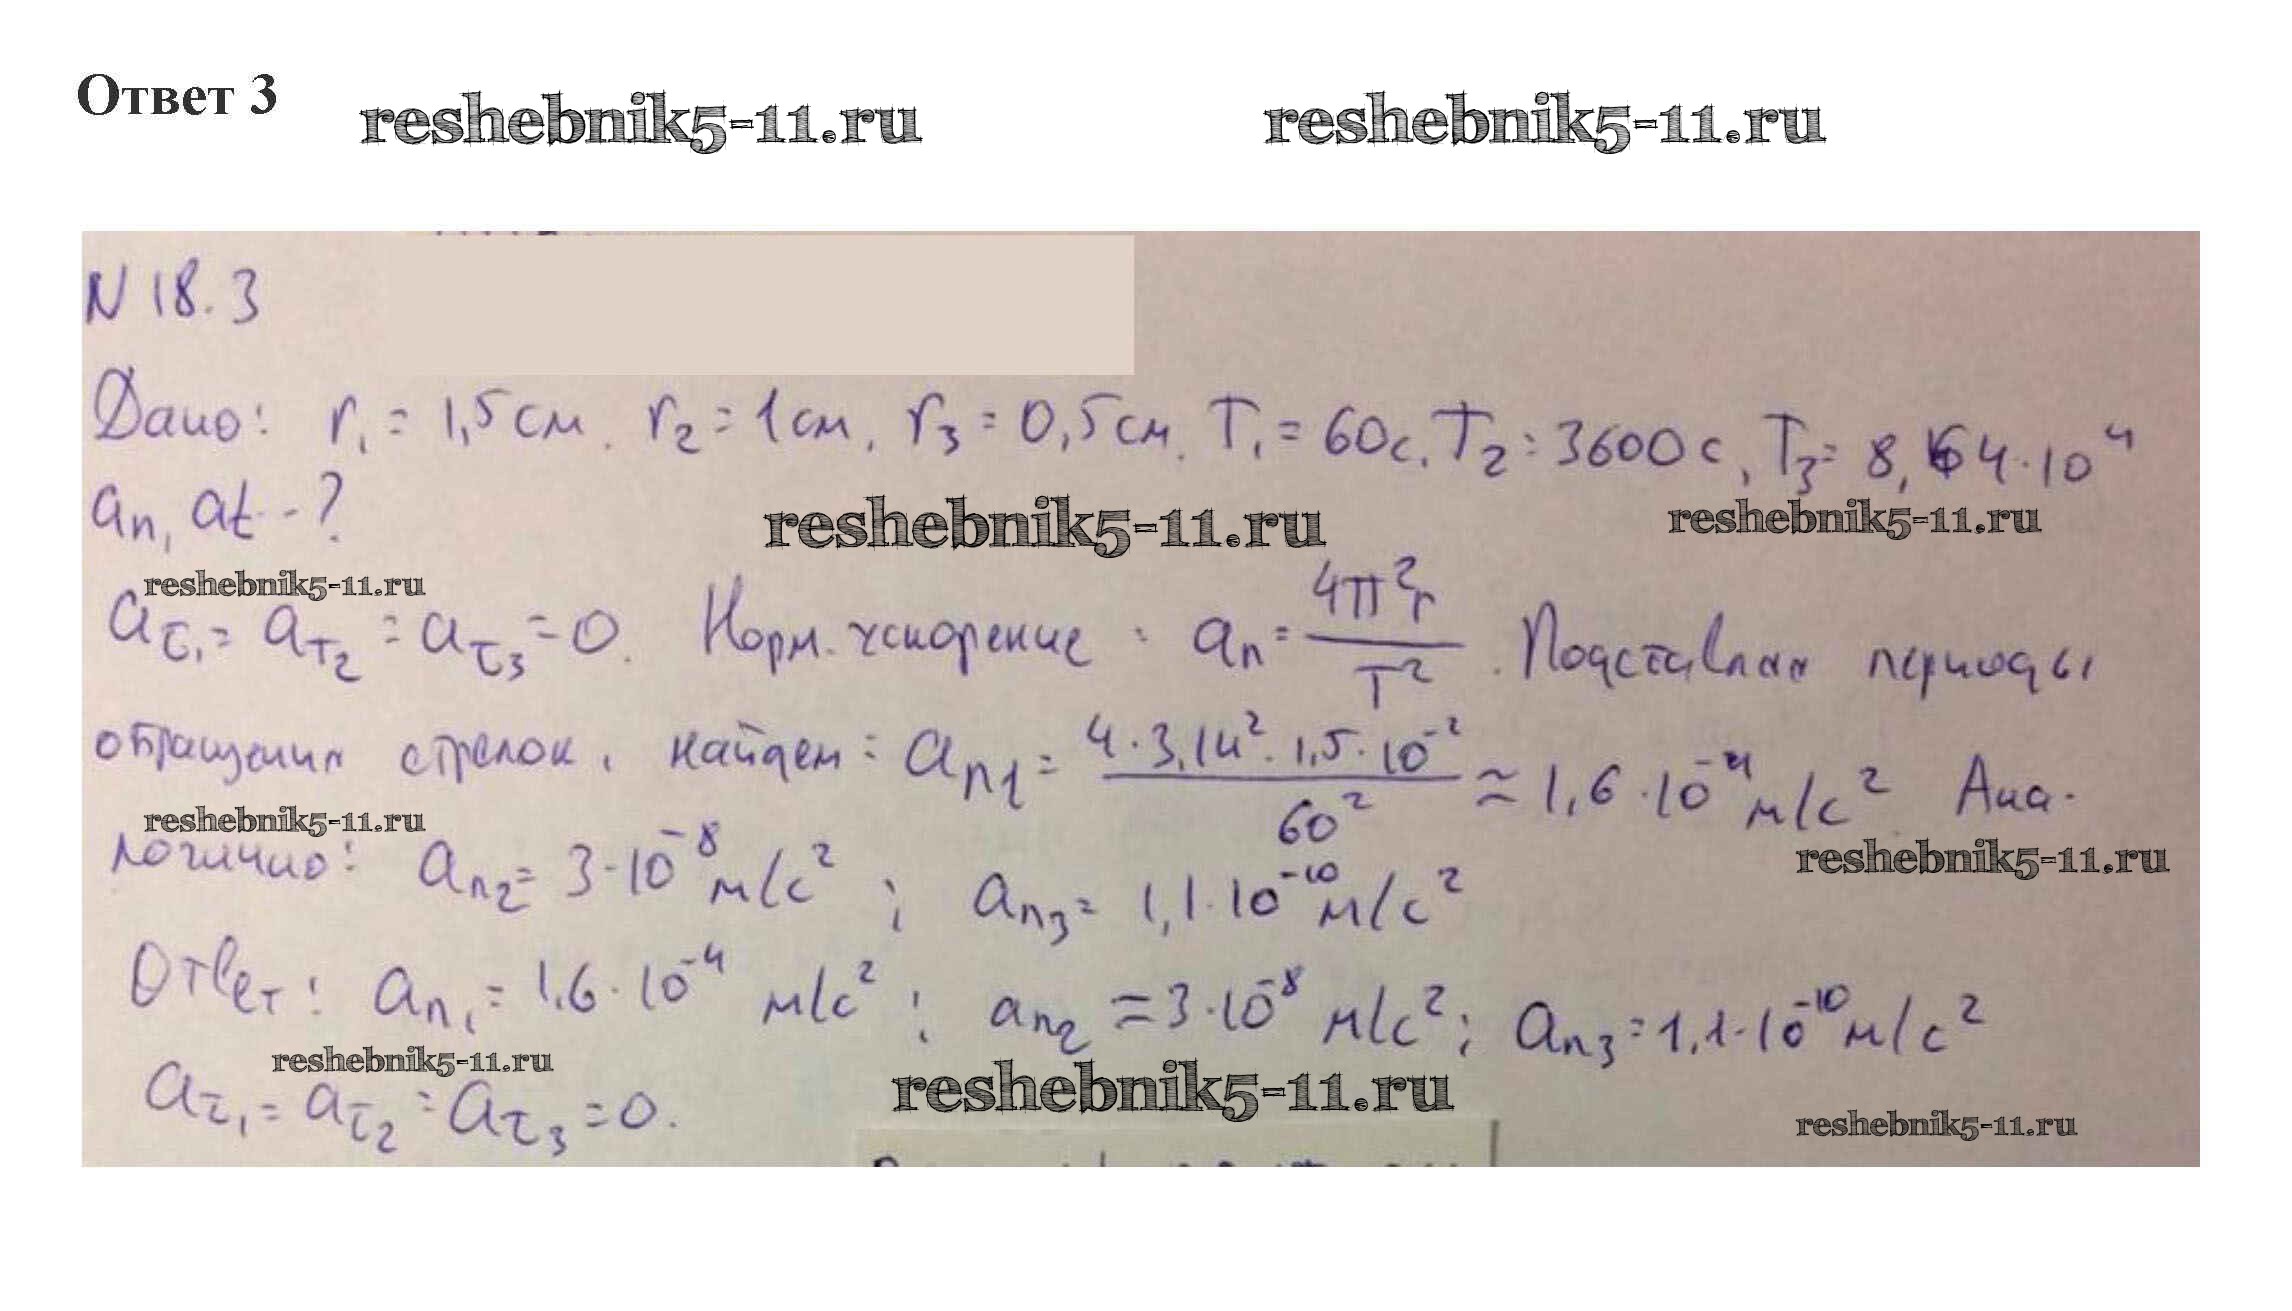 Ответ 3
reshebnik5-11.ru reshebnik5-11.ru
N 18.3
Дано: r₁ = 1,5 см. r₂ = 1 см, r₃ = 0,5 см. T₁ = 60 с. T₂ = 3600 с, T₃ = 8,64·10⁴
reshebnik5-11.ru reshebnik5-11.ru
aₙ, at - ?
reshebnik5-11.ru
a_τ₁ = a_τ₂ = a_τ₃ = 0. Норм. ускорение: aₙ = 4π²r / T². Подставляя периоды
обращения стрелок, найдем: aₙ₁ = 4·3,14²·1,5·10⁻² / 60² ≈ 1,6·10⁻⁴ м/с² Ана-
reshebnik5-11.ru
логично: aₙ₂ = 3·10⁻⁸ м/с²; aₙ₃ = 1,1·10⁻¹⁰ м/с²
reshebnik5-11.ru
Ответ: aₙ₁ = 1,6·10⁻⁴ м/с²; aₙ₂ ≈ 3·10⁻⁸ м/с²; aₙ₃ = 1,1·10⁻¹⁰ м/с²
reshebnik5-11.ru reshebnik5-11.ru
a_τ₁ = a_τ₂ = a_τ₃ = 0.
reshebnik5-11.ru